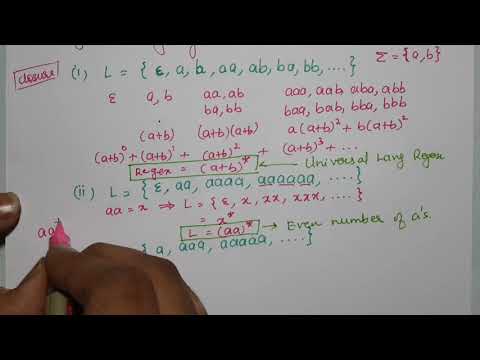 Σ = {a,b}
closure (i) L = { ε, a, b, aa, ab, ba, bb, .... }
ε a, b aa, ab aaa, aab aba, abb
ba, bb baa, bab, bba, bbb
(a+b) (a+b)(a+b) a(a+b)² + b(a+b)²
(a+b)⁰ + (a+b)¹ + (a+b)² + (a+b)³ + ...
Regex = (a+b)* ← Universal Lang Regex
(ii) L = { ε, aa, aaaa, aaaaaa, .... }
aa = x ⇒ L = { ε, x, xx, xxx, .... }
= x*
L = (aa)* → Even number of a's.
aa
{ a, aaa, aaaaa, .... }